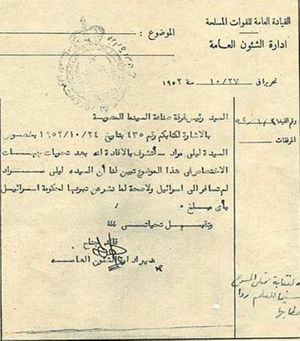 القيادة العامة للقوات المسلحة
ادارة الشئون العامة
الموضوع :
تحريرا فى ١٠/٢٧ ١٩٥٢
رقم القيد
المرفقات
السيد رئيس غرفة صناعة السينما المصرية
بالاشارة لكتابكم رقم ٤٣٥ بتاريخ ١٩٥٢/١٠/٢٤ بخصوص
السيدة ليلى مراد ـ أتشرف بالافادة انه بعد تحريات جهات
الاختصاص فى هذا الموضوع تبين لنا أن السيدة ليلى مراد
لم تسافر الى اسرائيل ولا صحة لما نشر عن تبرعها لحكومة اسرائيل
بأى مبلغ
وتفضلوا تحياتى
قائد جناح
مدير ادارة الشئون العامة